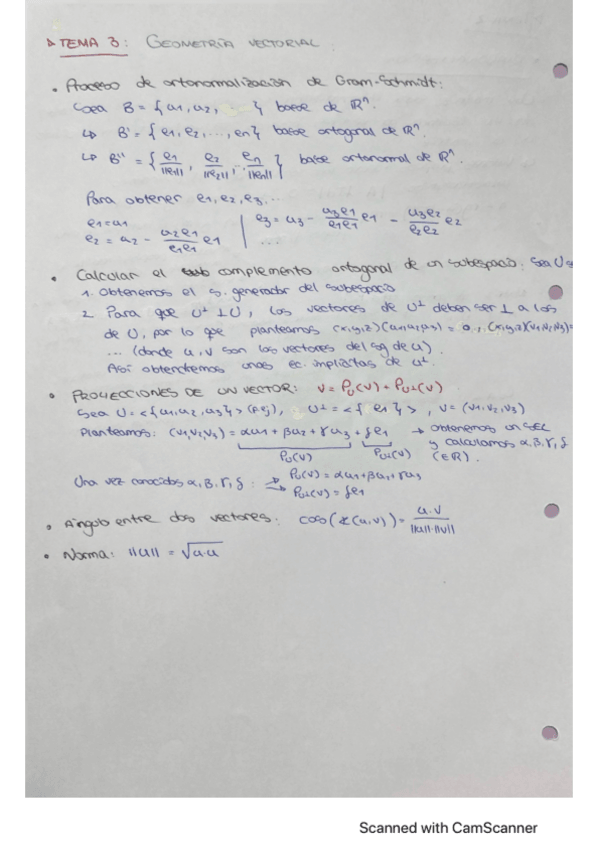 ▷ TEMA 3: GEOMETRÍA VECTORIAL
• Proceso de ortonormalización de Gram-Schmidt:
Sea B = { u1, u2, ... } base de ℝⁿ.
↳ B' = { e1, e2, ..., en } base ortogonal de ℝⁿ.
↳ B'' = { e1/||e1||, e2/||e2||, ... en/||en|| } base ortonormal de ℝⁿ.
Para obtener e1, e2, e3, ...
e1 = u1
e2 = u2 - (u2e1/e1e1) e1
e3 = u3 - (u3e1/e1e1) e1 - (u3e2/e2e2) e2
...
• Calcular el complemento ortogonal de un subespacio: Sea U s
1. Obtenemos el s. generador del subespacio
2. Para que U⊥ ⊥ U, los vectores de U⊥ deben ser ⊥ a los
de U, por lo que planteamos (x,y,z)(u1,u2,u3) = 0, (x,y,z)(v1,v2,v3)=
... (donde u, v son los vectores del sg de U).
Así obtendremos unas ec. implícitas de U⊥.
• PROYECCIONES DE UN VECTOR: V = PU(V) + PU⊥(V)
Sea U = <{u1,u2,u3}> (p.ej), U⊥ = <{e1}>, V = (V1,V2,V3)
Planteamos: (V1,V2,V3) = αu1 + βu2 + γu3 + δe1 → obtenemos un SEL
y calculamos α,β,γ,δ
PU(V) PU⊥(V) (∈ℝ).
Una vez conocidos α,β,γ,δ: → PU(V) = αu1+βu2+γu3
→ PU⊥(V) = δe1
• Ángulo entre dos vectores: cos(∡(u,v)) = u·v/||u||·||v||
• Norma: ||u|| = √u·u
Scanned with CamScanner